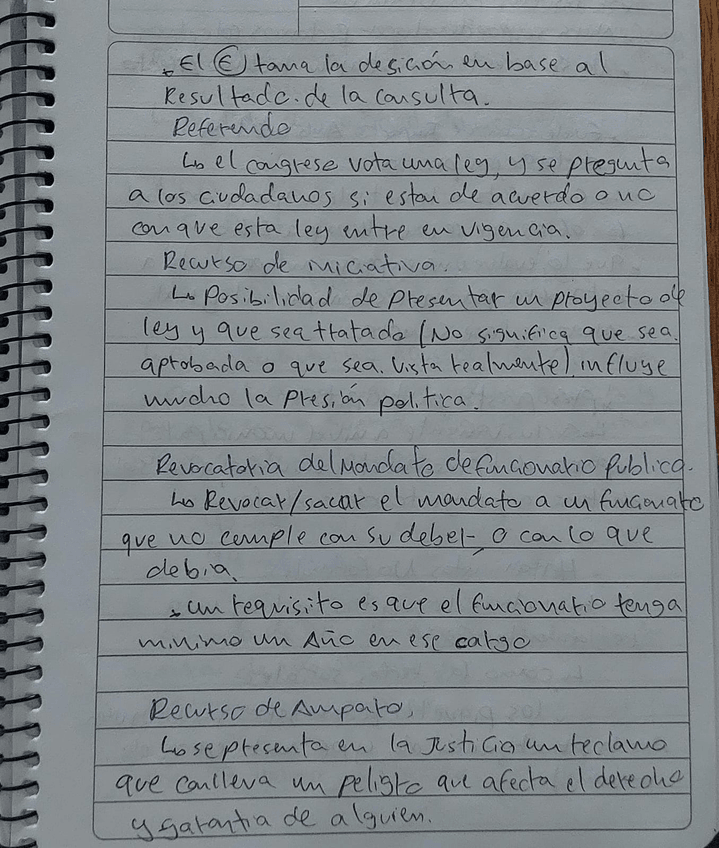 . El Ⓔ toma la desición en base al
Resultado. de la consulta.
Referendo
↳ el congreso vota una ley, y se pregunta
a los ciudadanos si estan de acuerdo o no
con que esta ley entre en vigencia.
Recurso de iniciativa.
↳ Posibilidad de presentar un proyecto de
ley y que sea tratado (No significa que sea
aprobada o que sea. vista realmente) influye
mucho la presión politica.
Revocatoria del Mandato de funcionario publico.
↳ Revocar/sacar el mandato a un funcionario
que no cumple con su deber, o con lo que
debia.
. un requisito es que el funcionario tenga
minimo un Año en ese cargo
Recurso de Amparo,
↳ se presenta en la Justicia un reclamo
que conlleva un peligro que afecta el derecho
y garantia de alguien.